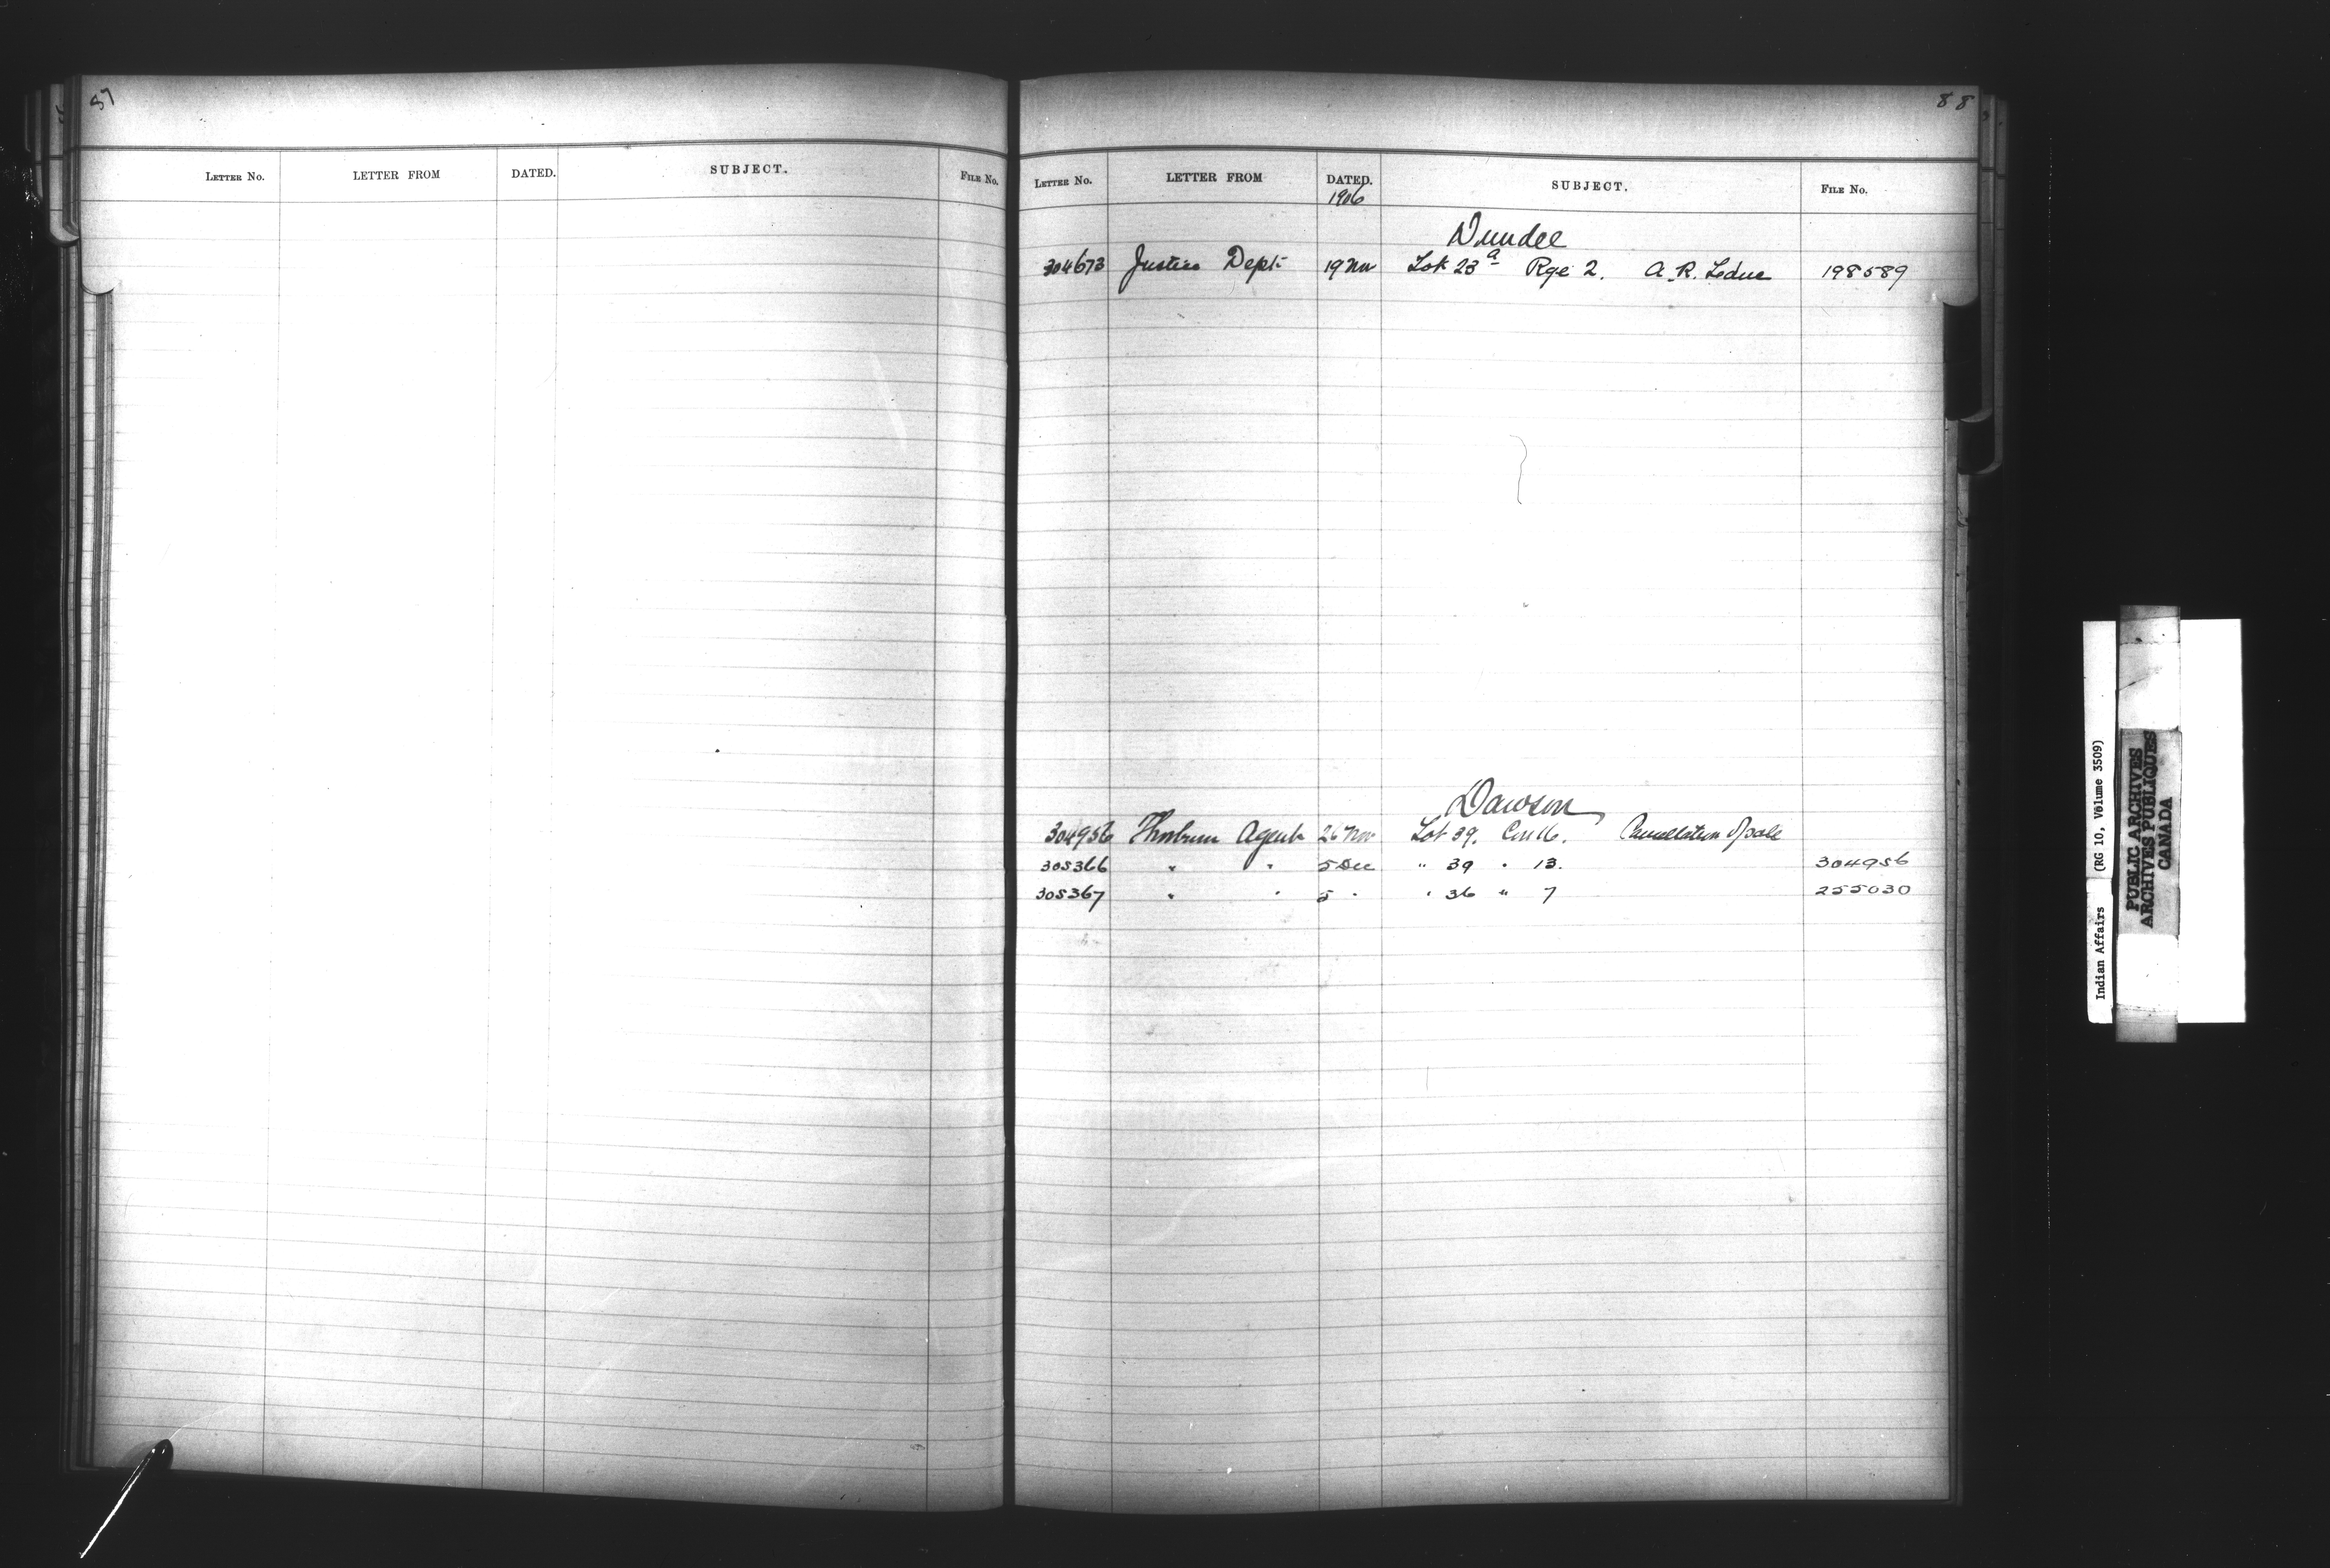 87
LETTER No. LETTER FROM DATED. SUBJECT. FILE No.
88
LETTER No. LETTER FROM DATED. SUBJECT. FILE No.
1906
Dundee
304673 Justice Dept. 19 Nov Lot 23a Rge 2. A. R. Leduc 198589
Dawson
304956 Thorburn Agent 26 Nov Lot 39. Con 16. Cancellation of sale
305366 " " 5 Dec " 39 " 13. 304956
305367 " " 5 " " 36 " 7 255030
Indian Affairs (RG 10, Volume 3509)
PUBLIC ARCHIVES
ARCHIVES PUBLIQUES
CANADA